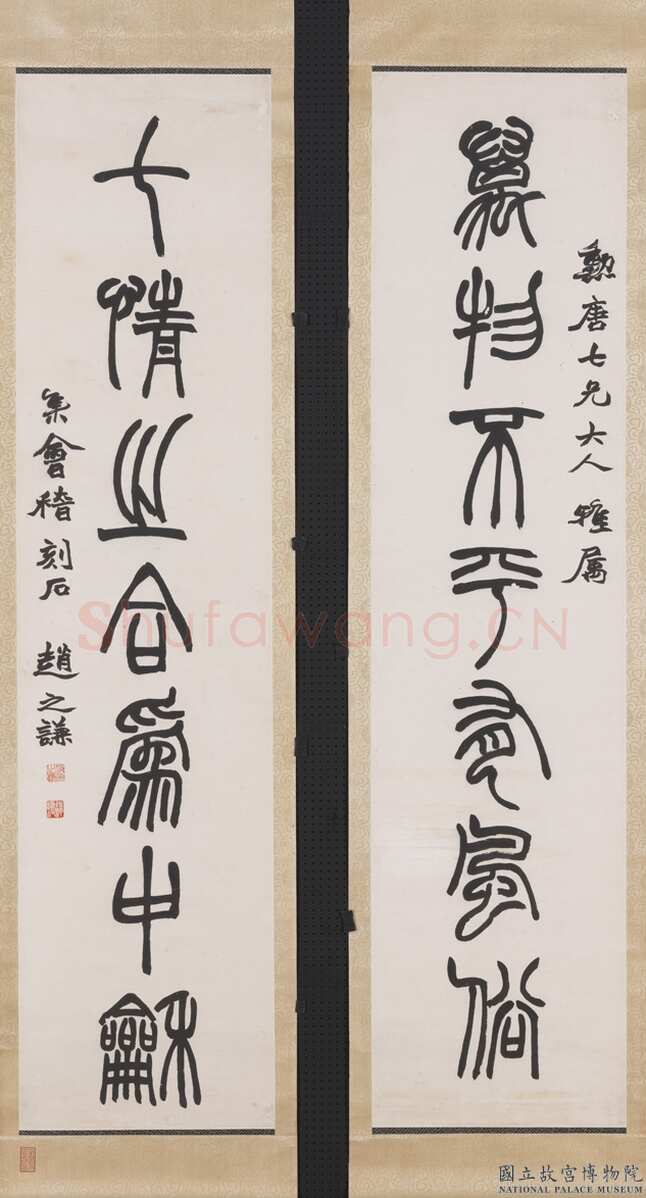 勲唐七兄大人 雅屬
萬物不平有風俗
七情之合爲中龢
集會稽刻石 趙之謙
Shufawang.CN
國立故宮博物院
NATIONAL PALACE MUSEUM